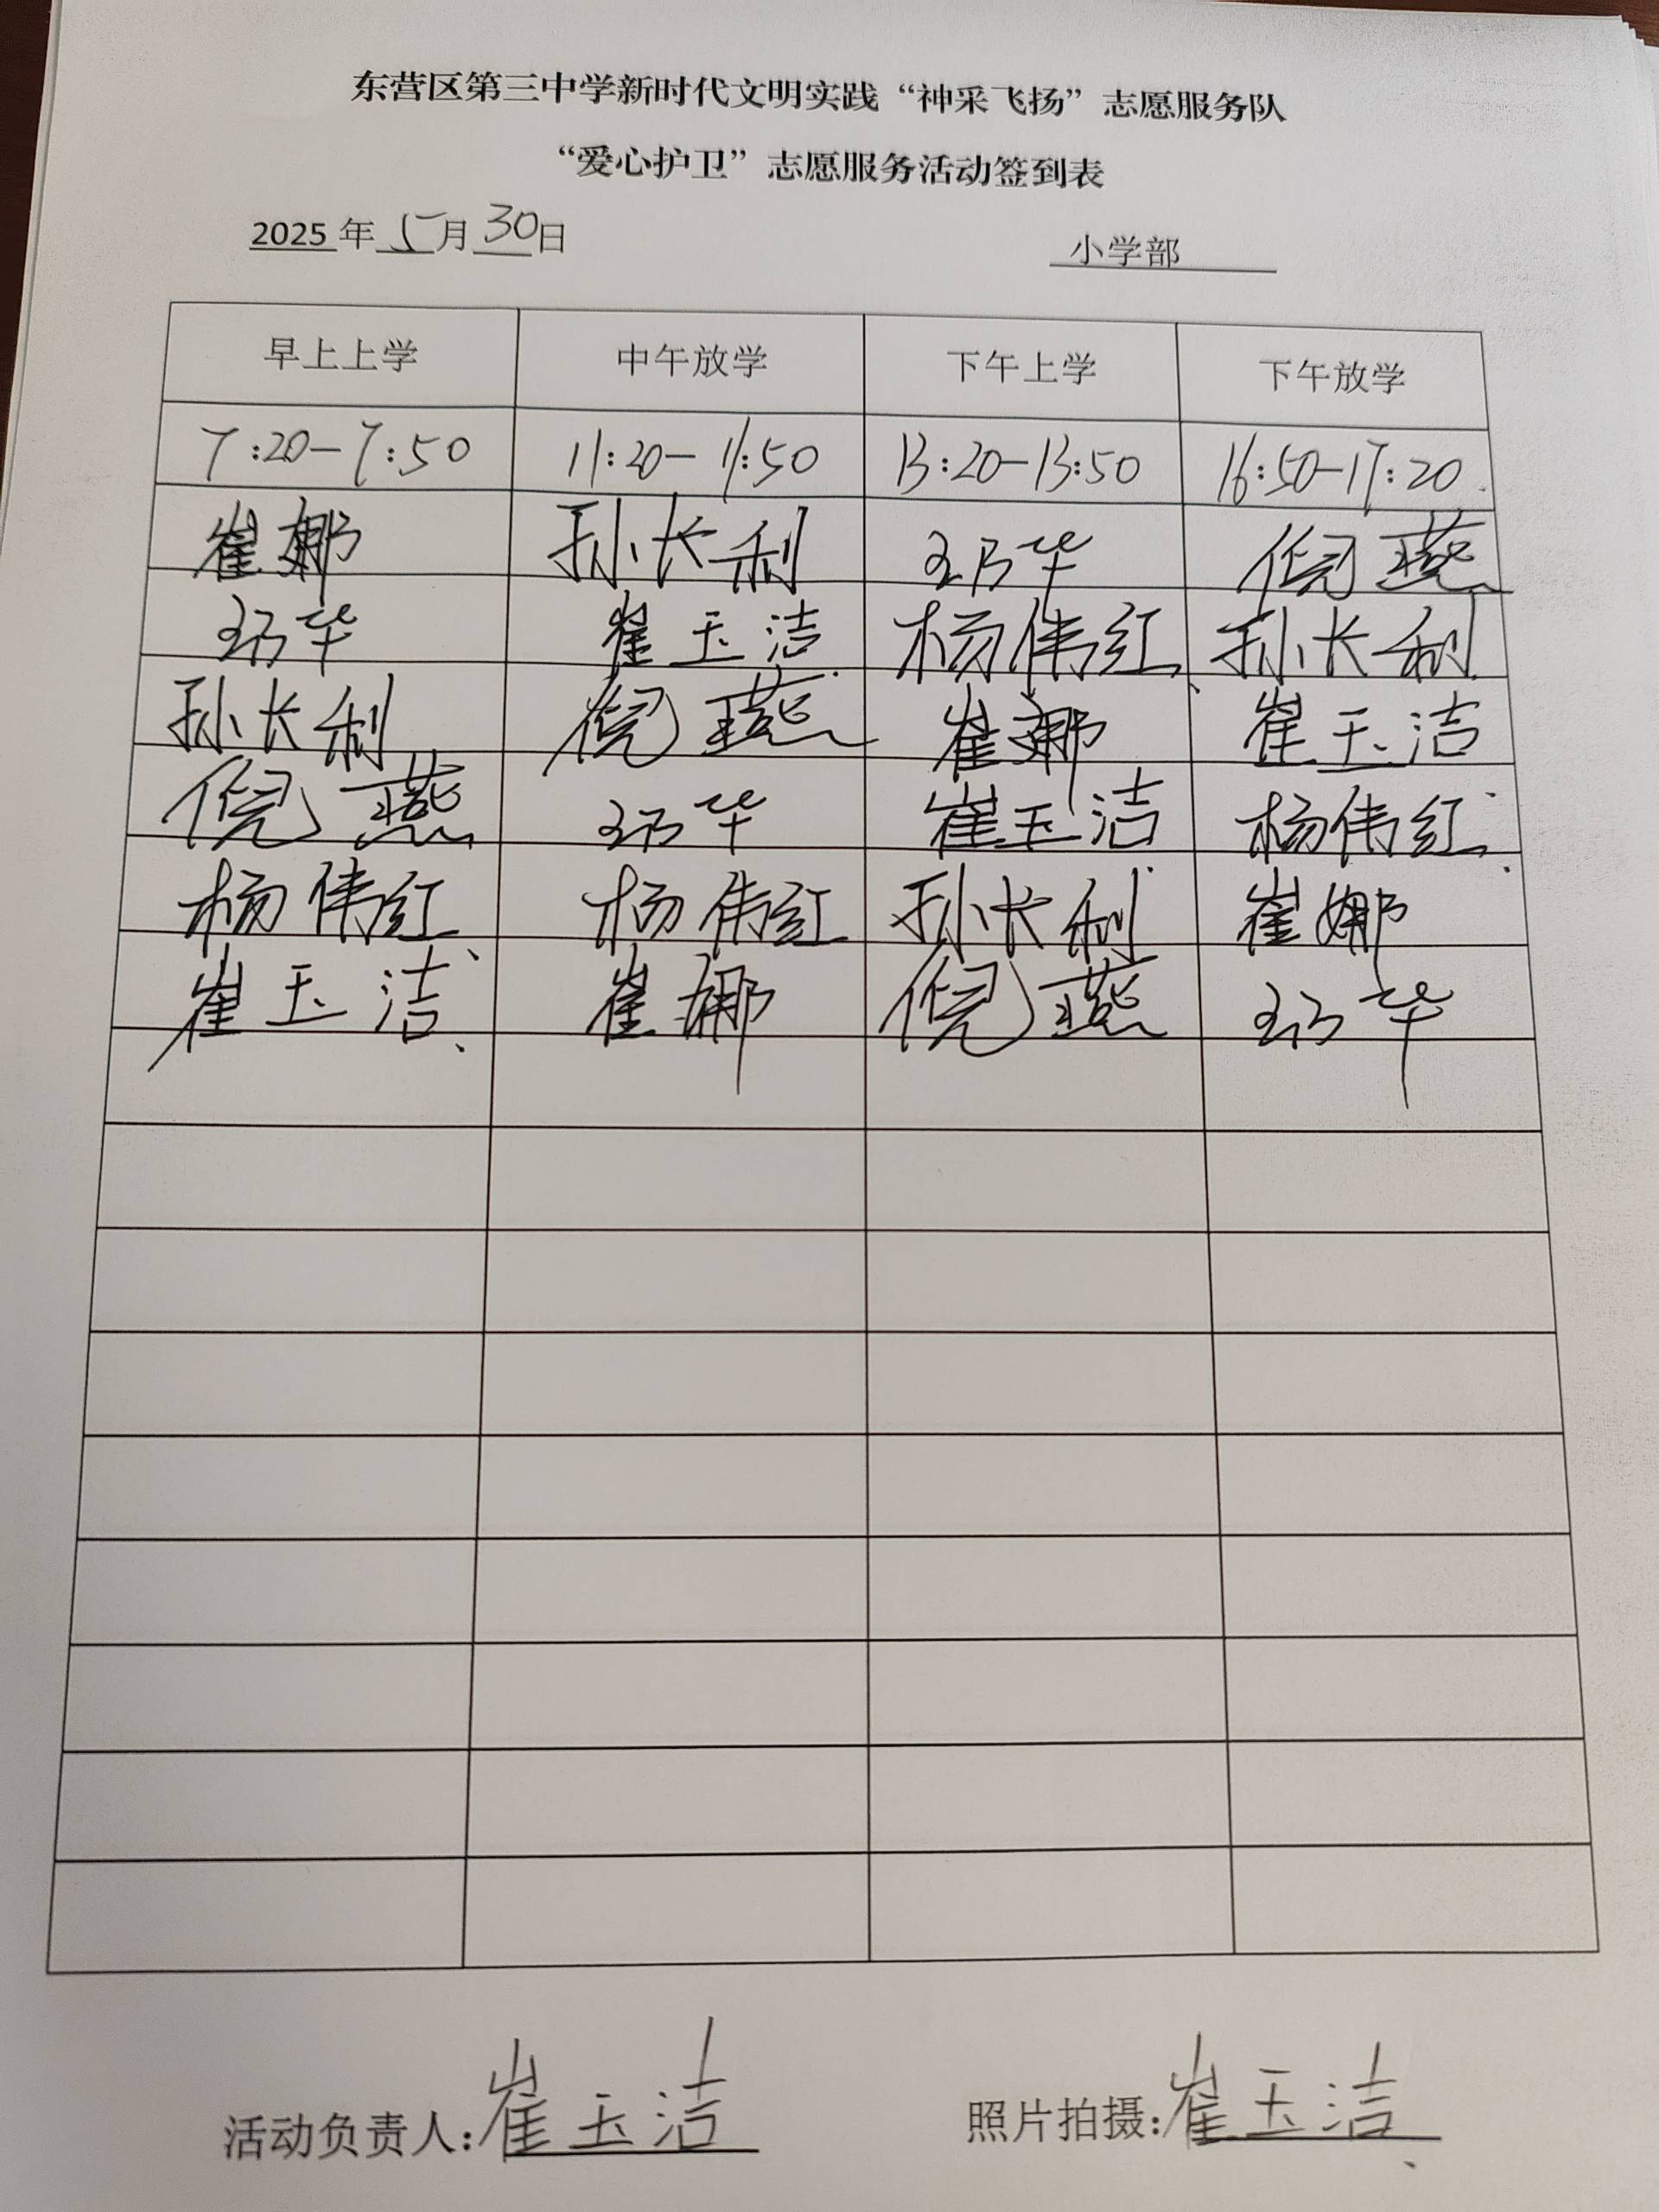 东营区第三中学新时代文明实践“神采飞扬”志愿服务队
“爱心护卫”志愿服务活动签到表
2025年5月30日 小学部
早上上学 中午放学 下午上学 下午放学
7:20-7:50 11:20-11:50 13:20-13:50 16:50-17:20
崔娜 孙长利 华 倪燕
华 崔玉洁 杨伟红 孙长利
孙长利 倪燕 崔娜 崔玉洁
倪燕 华 崔玉洁 杨伟红
杨伟红 杨伟红 孙长利 崔娜
崔玉洁 崔娜 倪燕 华
活动负责人:崔玉洁 照片拍摄:崔玉洁